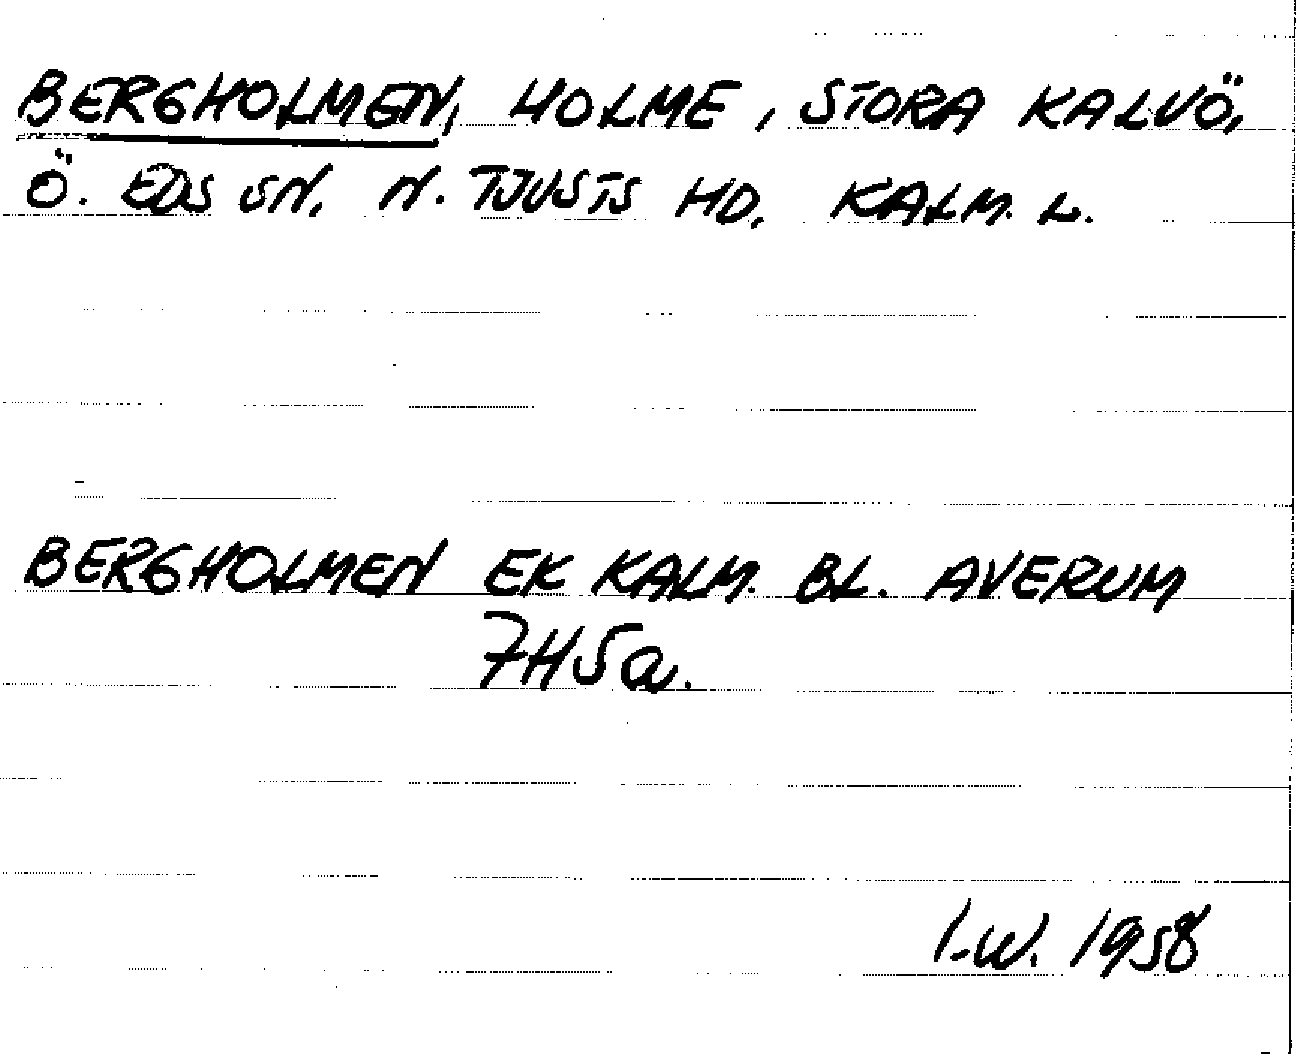 BERGHOLMEN, HOLME, STORA KALVÖ,
Ö. EDS SN, N. TJUSTS HD, KALM. L.
BERGHOLMEN EK KALM. BL. AVERUM
7H5a.
I.W. 1958